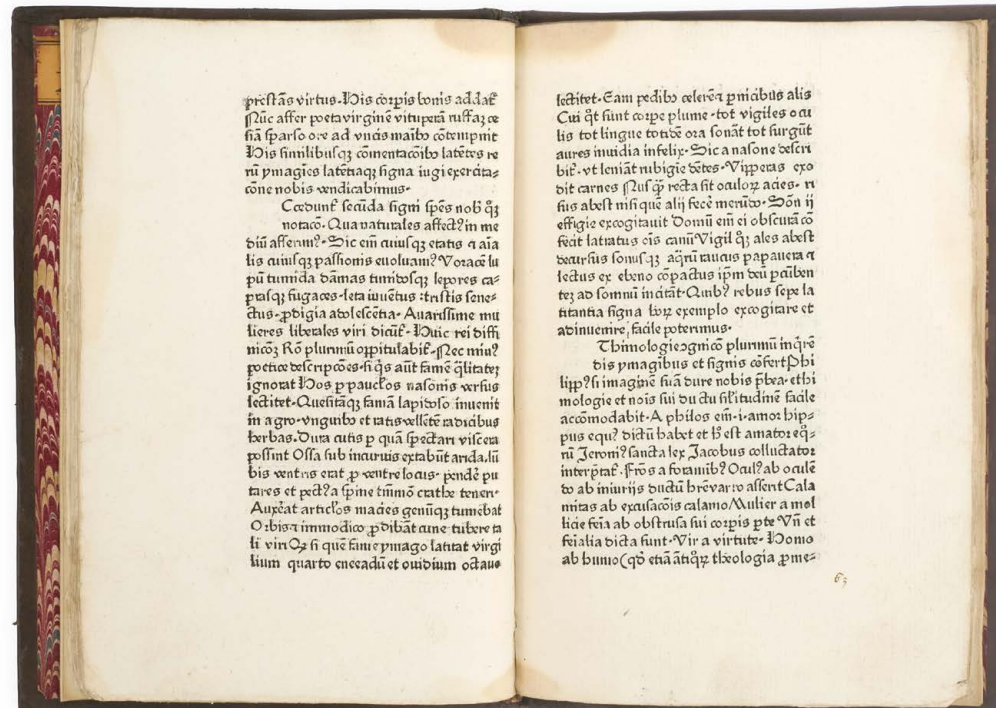 prestās virtus. His corpis bonis addat᷑
Nūc affer poeta virginē vituperā ruffaꝫ ce
siā sparso ore ad vncis maībꝰ cōtempnit
His similibusqꝫ cōmentacōibꝰ latētes re
rū ymagīes latētiaqꝫ signa iugi exercita-
cōne nobis vendicabimus.
Cedunt᷑ secūda signi spēs nobꝰ qꝫ
notacō. Qua naturales affectꝰ in me
diū afferimꝰ. Sic em̄ cuiusqꝫ etatis ⁊ aīa
lis cuiusqꝫ passionis euoluamꝰ Voracē lu
pū tumida dāmas timidosqꝫ lepores ca-
prasqꝫ fugaces. leta iuuētus : tristis sene-
ctus. ꝓdigia adolescētia. Auarissime mu
lieres liberales viri dicūt᷑. Huic rei diffi
nicōꝫ Rō plurimū oppitulabit᷑. Nec minꝰ
poetice descripcōes. si qͥs aūt famē qͣlitateꝫ
ignorat Hos ꝑ pauclos nasonis versus
lectitet. Quesitāqꝫ famā lapidoso inuenit
in agro. vnguibꝰ et raris vellētē radicibus
herbas. Dura cutis ꝑ quā spectari viscera
possint Ossa sub incuruis extabūt arida. lū
bis ventris erat ꝓ ventre locus. pendē pu
tares et pectꝰ a spine tm̄mō crathe teneri.
Auxerat articlos macies genūqꝫ tumebat
Orbis ⁊ immodico ꝓdibāt cune tubere ta
li viri Qꝫ si quē famie ymago latitat virgi
lium quarto eneeadū et ouidium octauo
lectitet. Eam pedibꝰ celerē ⁊ ꝑnicibus alis
Cui qͦt sunt corpe plume. tot vigiles ocu
lis tot lingue totidē ora sonāt tot surgūt
aures inuidia infelix. Sic a nasone descri
bit᷑. vt leniāt rubigīe dētes. Vipperas exo
dit carnes Nusqͣ recta sit oculoꝝ acies. ri
sus abest nisi que alij fecē merēdo. Sōn ij
effigie excogitauit Domū em̄ ei obscurā cō
fecit latratus oīs canū Vigil qꝫ ales abest
decursus sonusqꝫ aqͣrū raucus papauera ⁊
lectus ex ebeno cōpactus ip̄m deū ꝓcūben
teꝫ ad somnū incitāt. Quibꝰ rebus sepe la
titantia signa hoꝝ exemplo excogitare et
adinuenire, facile poterimus.
Thimologie ꝯgnicō plurimū in qͥrē
dis ymagibus et signis cōfert Phi
lippꝰ si imaginē suā dure nobis p̄bea. ethi
mologie et noīs sui ductu sil̄itudinē facile
accōmodabit. A philos em̄. i. amor hip-
pus equꝰ dictū habet et hͦ est amator eqͦ-
rū Jeronimꝰ sancta lex Jacobus colluctator
interp̄tat᷑. Frōs a foramibꝰ Oculꝰ ab oculē
do ab iniurijs ductū bꝛeuarro asserit Cala
mitas ab excusacōis calamo Mulier a mol
licie feīa ab obstrusa sui corpis ꝑte Vn̄ et
feīalia dicta sunt. Vir a virtute. Homo
ab humo (qd̄ etiā ātiqͦꝝ theologia ꝓme-
63